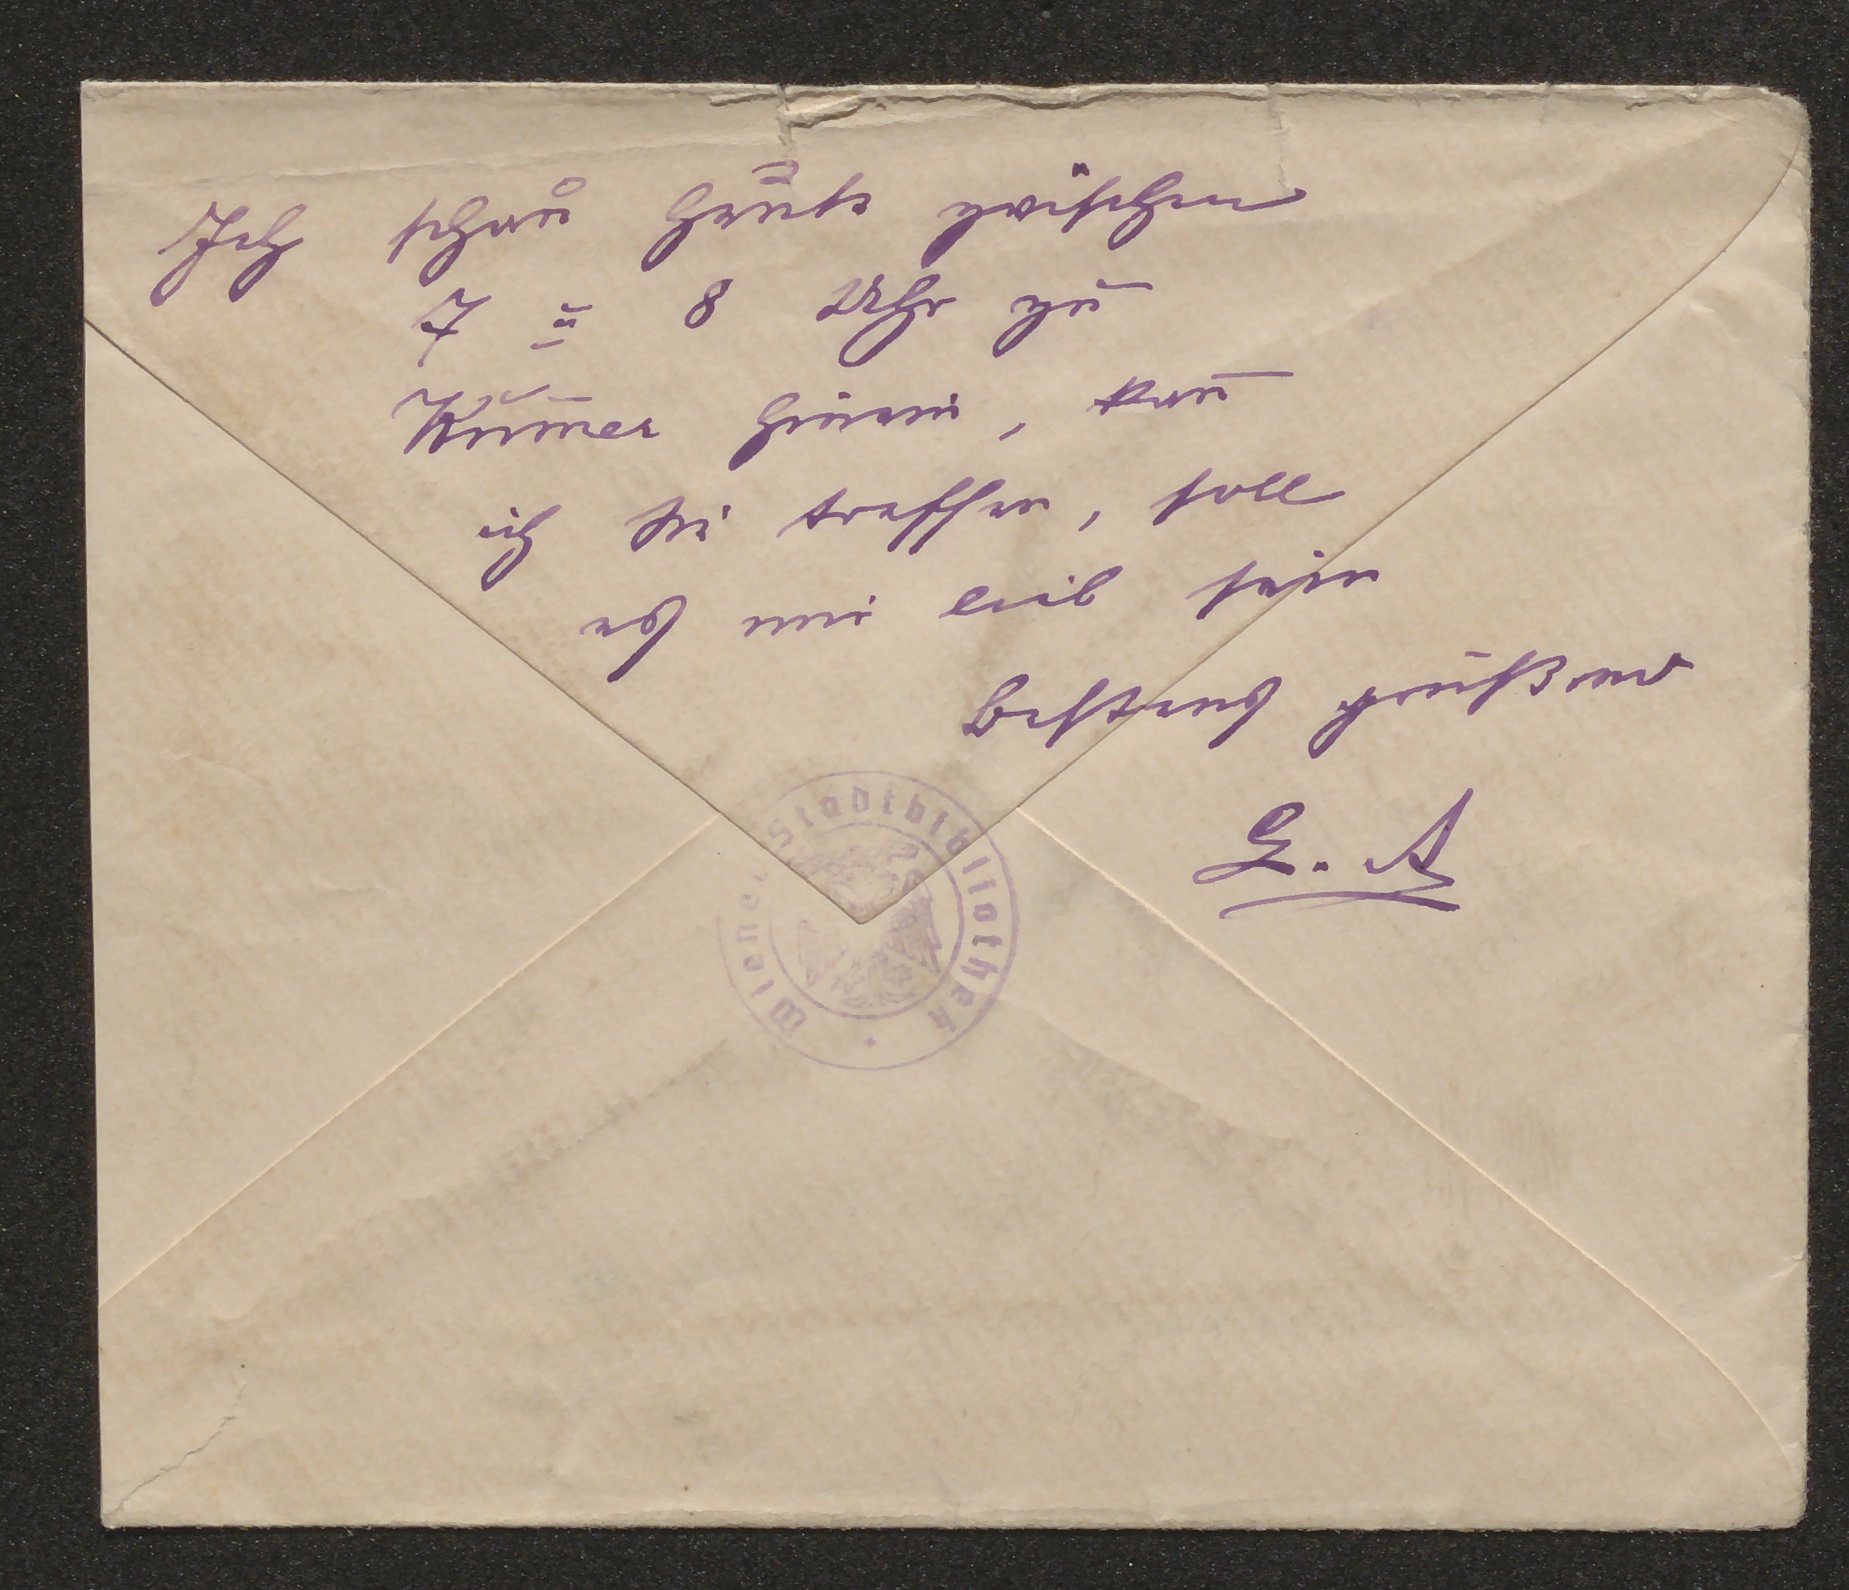 Ich schau heute zwischen
7 u 8 Uhr zu
hinein, kan̄
ich Sie treffen, soll
es mir lieb sein
bestens grüßend
G. A
Wiener Stadtbibliothek